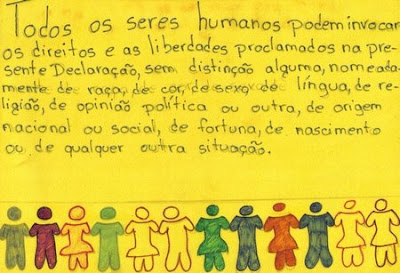 Todos os seres humanos podem invocar
os direitos e as liberdades proclamados na pre-
sente Declaração, sem distinção alguma, nomeada-
mente de raça, de cor, de sexo, de língua, de re-
ligião, de opinião política ou outra, de origem
nacional ou social, de fortuna, de nascimento
ou de qualquer outra situação.